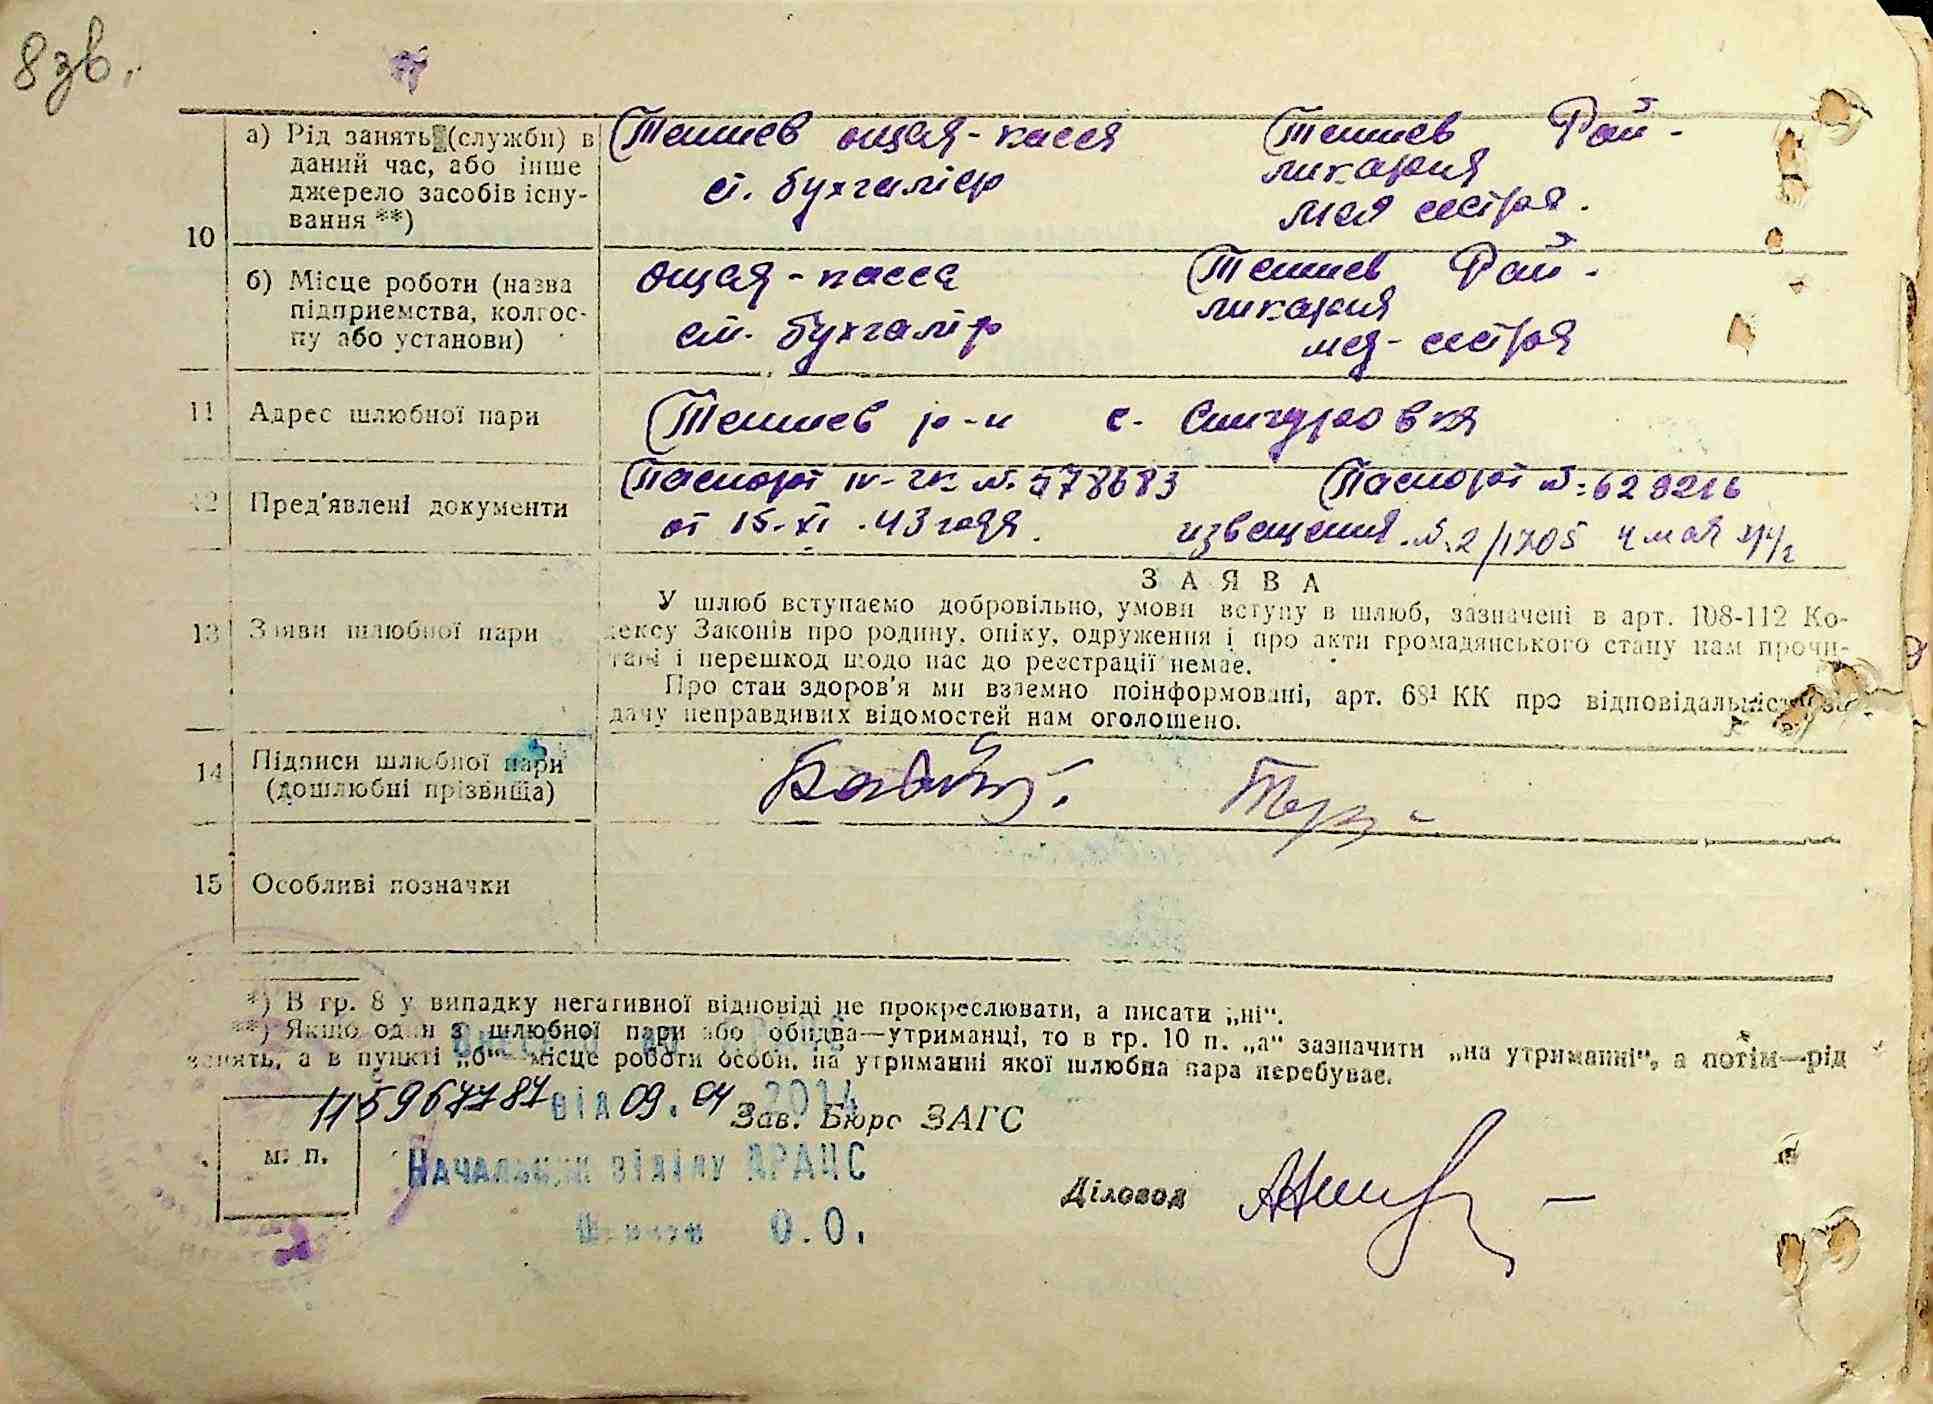 8 зв.
10
а) Рід занять (служби) в
даний час, або інше
джерело засобів існу-
вання **)
Тешиев ощад-касса
ст. бухгалтер
Тешиев Рай-
ликарня
мед сестра.
б) Місце роботи (назва
підприємства, колгос-
пу або установи)
ощад-касса
ст. бухгалтер
Тешиев Рай-
ликарня
мед-сестра
11 Адрес шлюбної пари
Тешиев р-н с. Снигуровка
12 Пред'явлені документи
Паспорт № 578683
от 15-XI-43 года.
Паспорт №: 629216
извещения №.2/1705 4 мая
13 Заяви шлюбної пари
ЗАЯВА
У шлюб вступаємо добровільно, умови вступу в шлюб, зазначені в арт. 108-112 Ко-
дексу Законів про родину, опіку, одруження і про акти громадянського стану нам прочи-
тані і перешкод щодо нас до реєстрації немає.
Про стан здоров'я ми взаємно поінформовані, арт. 68¹ КК про відповідальність за
дачу неправдивих відомостей нам оголошено.
14 Підписи шлюбної пари
(дошлюбні прізвища)
15 Особливі позначки
*) В гр. 8 у випадку негативної відповіді не прокреслювати, а писати „ні“.
**) Якщо один з шлюбної пари або обидва—утриманці, то в гр. 10 п. „а“ зазначити „на утриманні“, а потім—рід
занять, а в пункті „б“ місце роботи особи, на утриманні якої шлюбна пара перебуває.
від 09.04.2014
Зав. Бюро ЗАГС
м. п.
Начальник відділу ДРАЦС
О.О.
Діловод